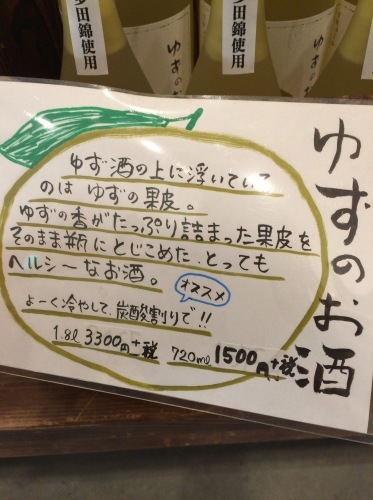 多田錦使用
ゆずのお
多田錦使用
ゆずのお
ゆずのお酒
ゆず酒の上に浮いている
のは ゆずの果皮。
ゆずの香がたっぷり詰まった果皮を
そのまま瓶にとじこめた、とっても
ヘルシーなお酒。
オススメ
よーく冷やして、炭酸割りで!!
1.8ℓ 3300円+税 720ml 1500円+税